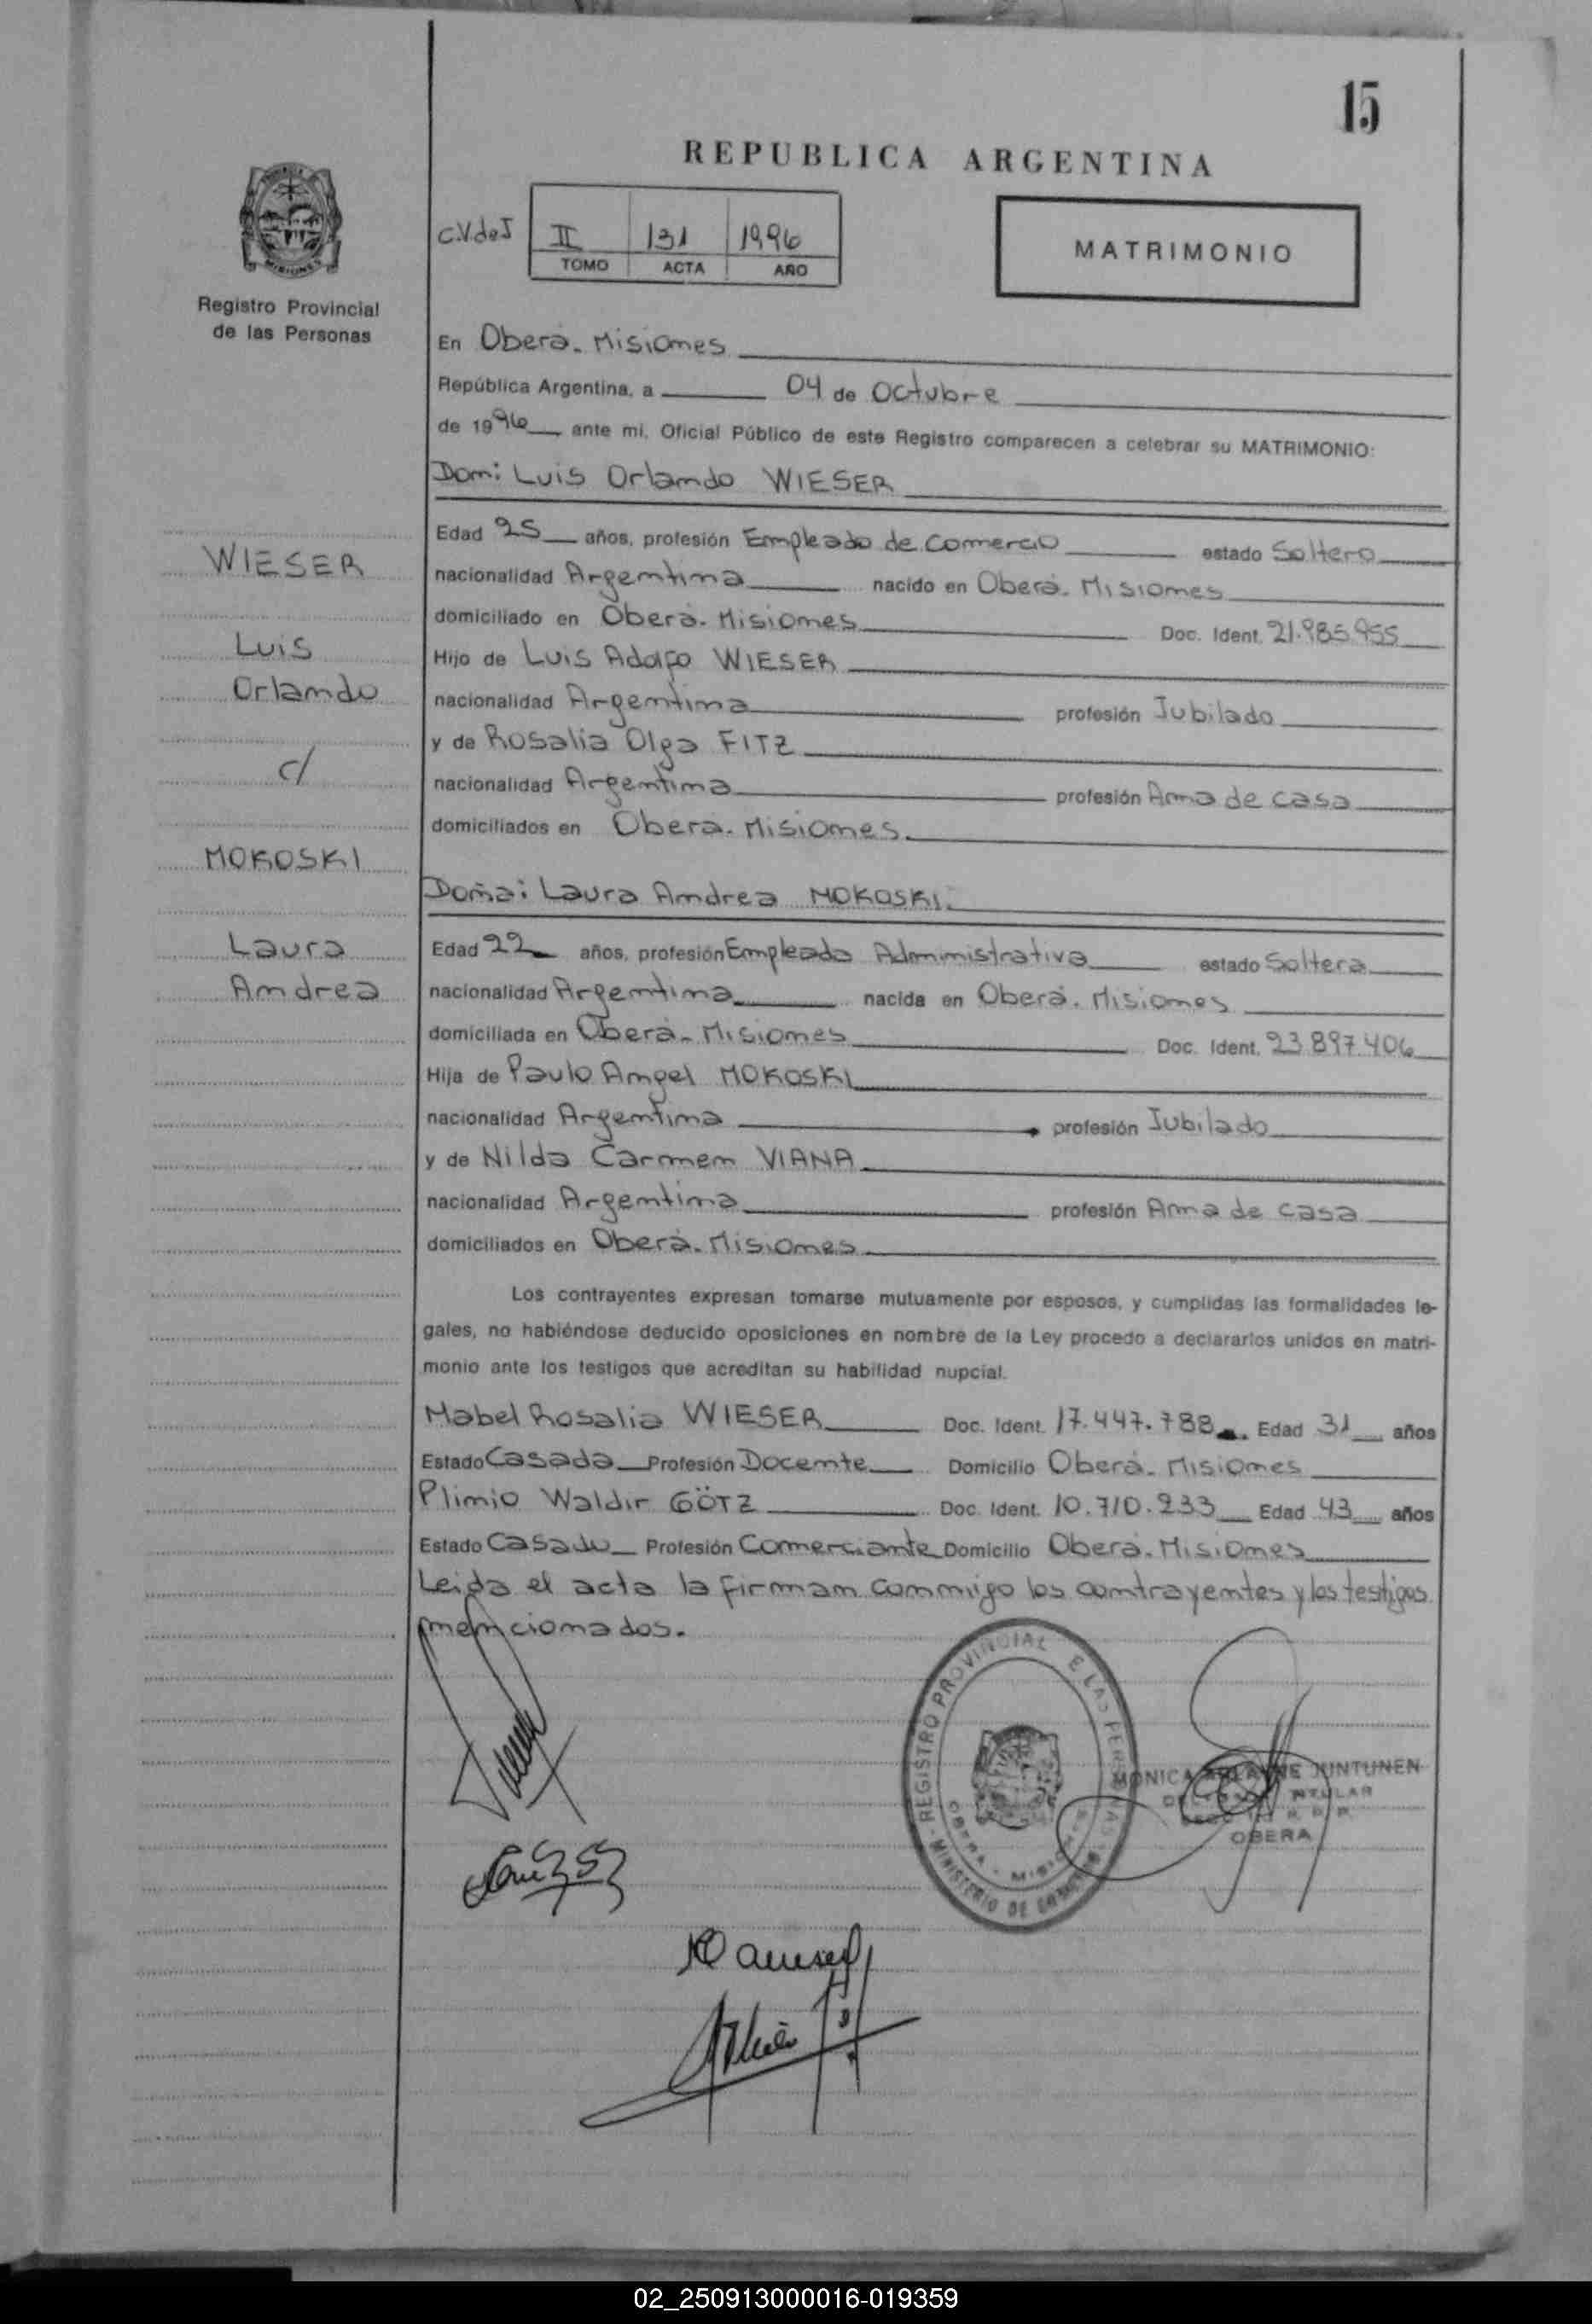 15
REPUBLICA ARGENTINA
MISIONES
Registro Provincial
de las Personas
C.V.deJ II 131 1996
TOMO ACTA AÑO
MATRIMONIO
En Oberá - Misiones
República Argentina, a 04 de Octubre
de 1996 ante mi, Oficial Público de este Registro comparecen a celebrar su MATRIMONIO:
Don: Luis Orlando WIESER
Edad 25 años, profesión Empleado de Comercio estado Soltero
nacionalidad Argentina nacido en Oberá - Misiones
domiciliado en Oberá - Misiones Doc. Ident. 21.985.955
Hijo de Luis Adolfo WIESER
nacionalidad Argentina profesión Jubilado
y de Rosalia Olga FITZ
nacionalidad Argentina profesión Ama de casa
domiciliados en Oberá - Misiones.
WIESER
Luis
Orlando
c/
MOKOSKI
Laura
Andrea
Doña: Laura Andrea MOKOSKI.
Edad 22 años, profesión Empleada Administrativa estado Soltera
nacionalidad Argentina nacida en Oberá - Misiones
domiciliada en Oberá - Misiones Doc. Ident. 23.897.406
Hija de Paulo Angel MOKOSKI
nacionalidad Argentina profesión Jubilado
y de Nilda Carmen VIANA
nacionalidad Argentina profesión Ama de casa
domiciliados en Oberá - Misiones
Los contrayentes expresan tomarse mutuamente por esposos, y cumplidas las formalidades le-
gales, no habiéndose deducido oposiciones en nombre de la Ley procedo a declararlos unidos en matri-
monio ante los testigos que acreditan su habilidad nupcial.
Mabel Rosalia WIESER Doc. Ident. 17.447.788 Edad 31 años
Estado Casada Profesión Docente Domicilio Oberá - Misiones
Plinio Waldir GÖTZ Doc. Ident. 10.710.233 Edad 43 años
Estado Casado Profesión Comerciante Domicilio Oberá - Misiones
Leida el acta la firman conmigo los contrayentes y los testigos
mencionados.
REGISTRO PROVINCIAL DE LAS PERSONAS
MINISTERIO DE GOBIERNO
OBERA - MISIONES
MONICA JUNTUNEN
TITULAR
OBERA
02_250913000016-019359